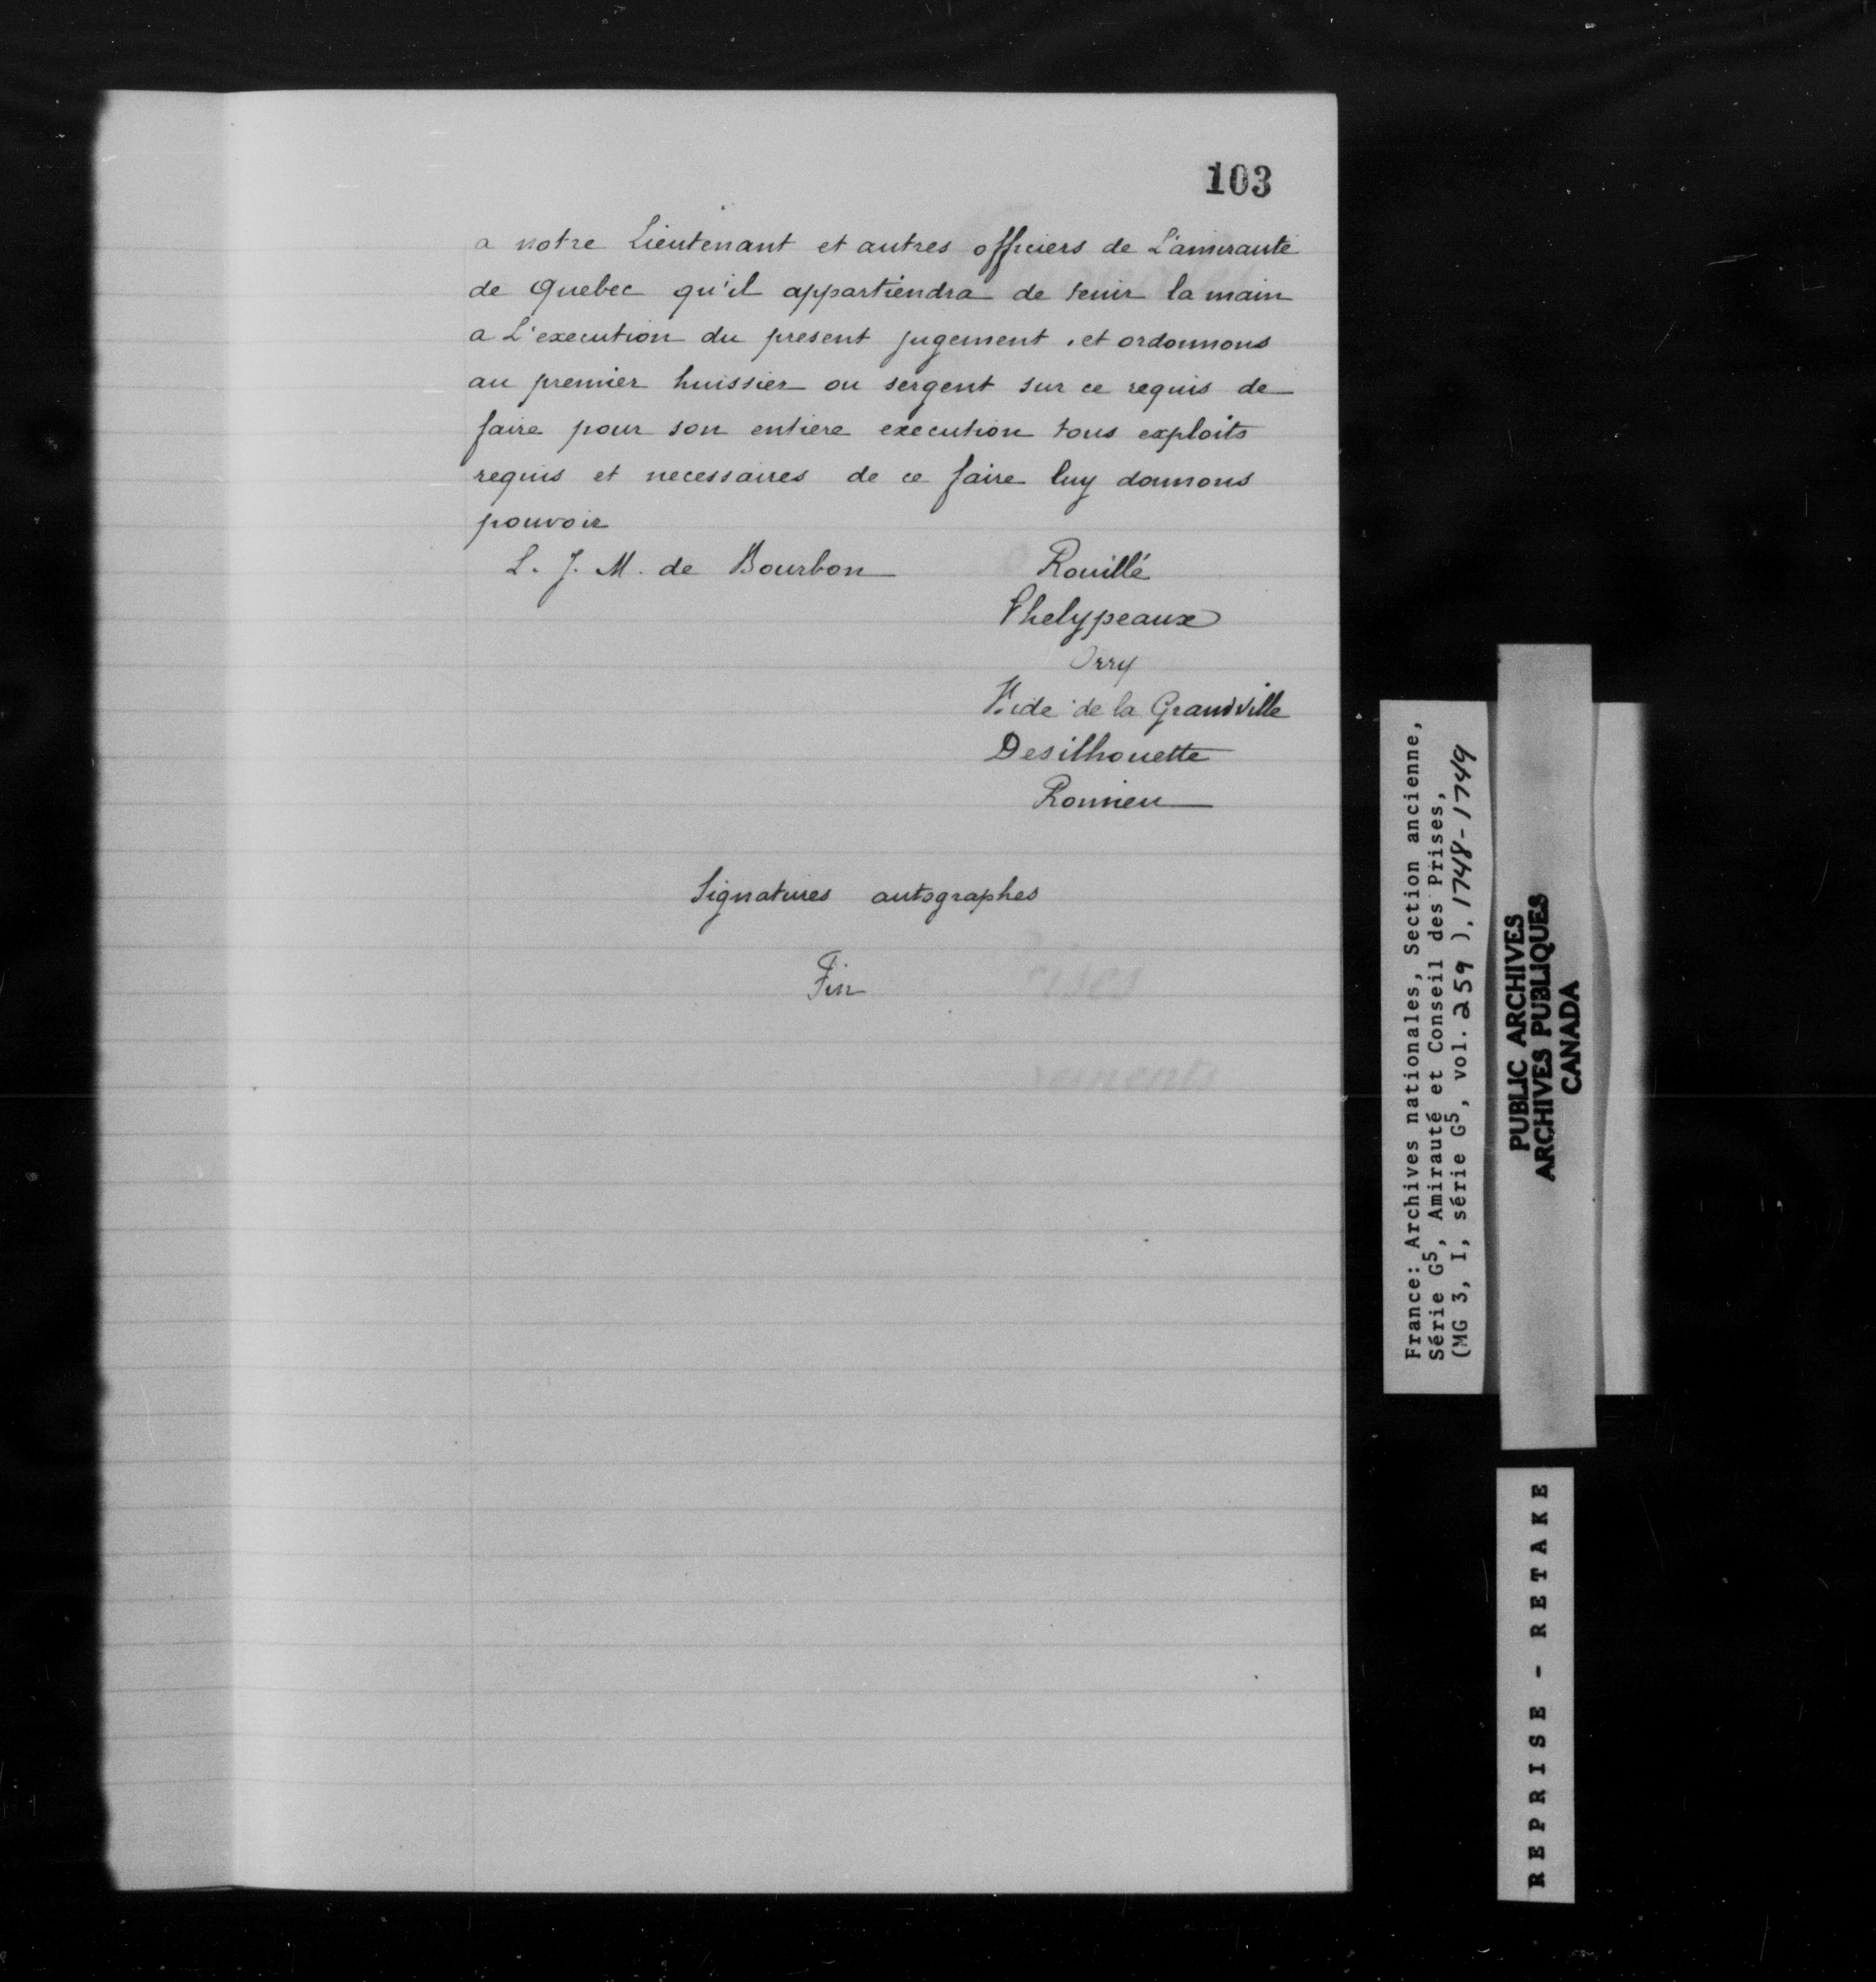 103
a notre Lieutenant et autres officiers de L'amirauté
de Quebec qu'il appartiendra de tenir la main
a L'execution du present jugement, et ordonnons
au premier huissier ou sergent sur ce requis de
faire pour son entiere execution tous exploits
requis et necessaires de ce faire luy donnons
pouvoir
L. J. M. de Bourbon Rouillé
Phelypeaux
Orry
de la Grandville
Desilhouette
Romieu
Signatures autographes
Fin
France: Archives nationales, Section ancienne,
Série G5, Amirauté et Conseil des Prises,
(MG 3, I, série G5, vol. 259 ). 1748-1749
PUBLIC ARCHIVES
ARCHIVES PUBLIQUES
CANADA
REPRISE - RETAKE